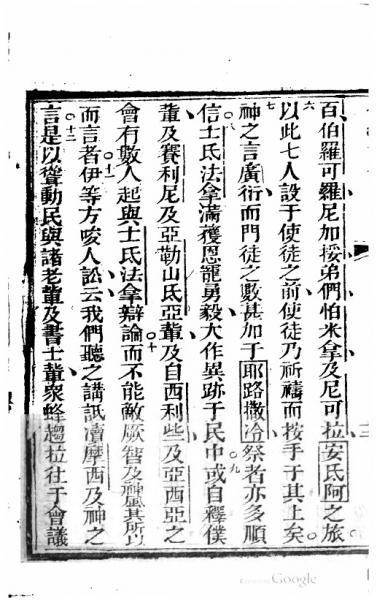 百伯羅可羅尼加挼弟們怕米拿及尼可拉安氏阿之旅
六以此七人設于使徒之前使徒乃祈禱而按手于其上矣
七神之言廣衍而門徒之數甚加于耶路撒冷祭者亦多順
信士氏法拿滿獲恩寵勇毅大作異跡于民中或自釋僕
輩及賽利尼及亞勒山氏亞輩及自西利些及亞西亞之
會有數人起與士氏法拿辯論而不能敵厥智及神風其所以
而言者伊等方唆人訟云我們聽之講詆瀆摩西及神之
言是以聳動民與諸老輩及書士輩眾蜂趨拉往于會議
Google